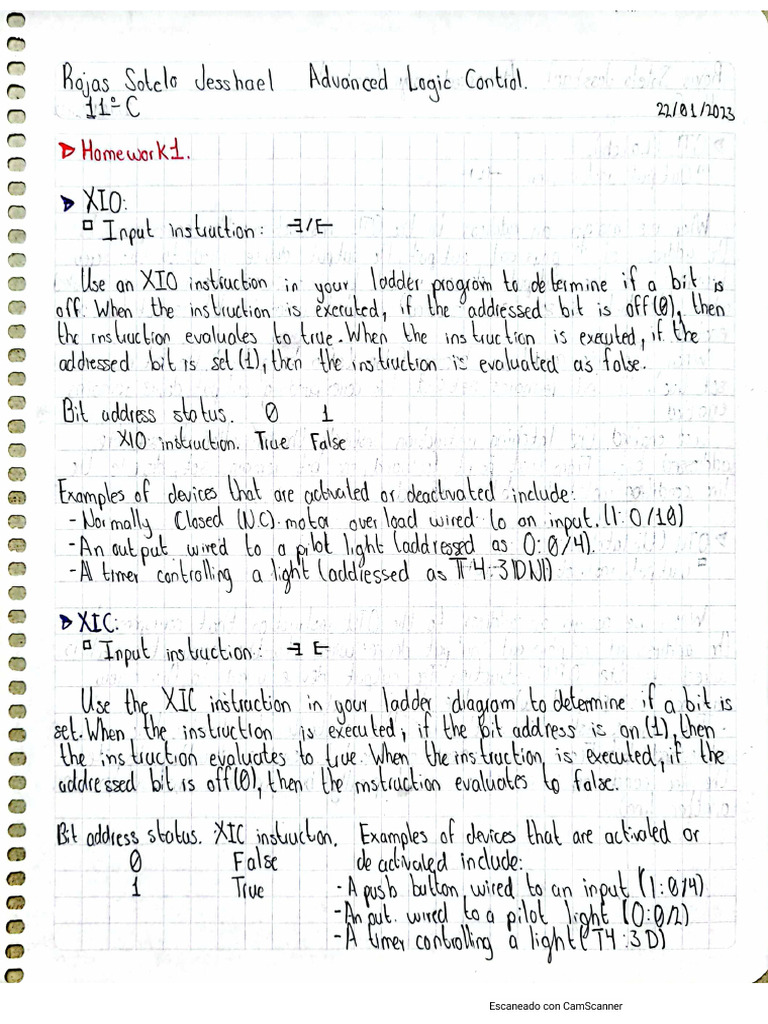 Rojas Sotelo Jesshael Advanced Logic Control.
11°C
22/01/2023
Homework 1.
XIO:
Input instruction: ‑]/[‑
Use an XIO instruction in your ladder program to determine if a bit is
off. When the instruction is executed, if the addressed bit is off (0), then
the instruction evaluates to true. When the instruction is executed, if the
addressed bit is set (1), then the instruction is evaluated as false.
Bit address status. 0 1
XIO instruction. True False
Examples of devices that are activated or deactivated include:
- Normally Closed (N.C). motor overload wired to an input. (I:0/10)
- An output wired to a pilot light (addressed as O:0/4).
- A timer controlling a light (addressed as T4:3/DN)
XIC:
Input instruction: -] [-
Use the XIC instruction in your ladder diagram to determine if a bit is
set. When the instruction is executed, if the bit address is on (1), then
the instruction evaluates to true. When the instruction is executed, if the
addressed bit is off (0), then the instruction evaluates to false.
Bit address status. XIC instruction.
0 False
1 True
Examples of devices that are activated or
deactivated include:
- A push button wired to an input (I:0/4)
- An put. wired to a pilot light (O:0/2)
- A timer controlling a light (T4:3D)
Escaneado con CamScanner